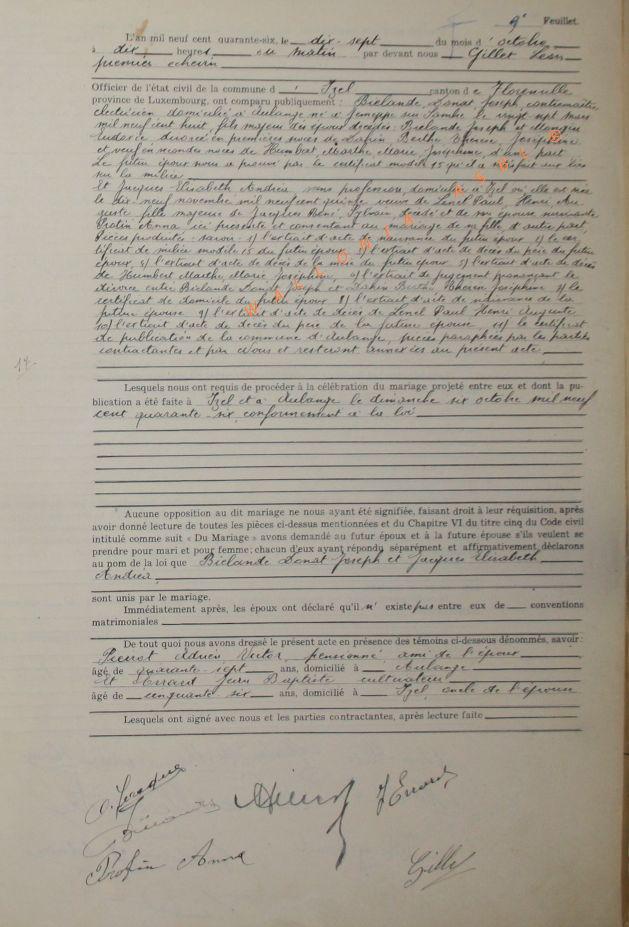 9e Feuillet.
L'an mil neuf cent quarante-six, le dix-sept du mois d'octobre
à dix heures du matin par devant nous Gillet Léon
premier échevin
Officier de l'état civil de la commune d'Izel canton de Florenville
province de Luxembourg, ont comparu publiquement : Bielande, Donat, Joseph, contremaître
électricien domicilié à Aubange né à Jemeppe sur Sambre le vingt sept mars
mil neuf cent huit, fils majeur des époux décédés : Bielande Joseph et
divorcé en premières noces de Berthe Thérèse Joséphine
et veuf en secondes noces de Humbert, Marthe, Marie, Joséphine, d'une part
Le futur époux nous a prouvé par le certificat modèle 15 qu'il a satisfait aux lois
sur la milice
Et Jacques Elisabeth Andréa sans profession, domiciliée à Izel où elle est née
le dix-neuf novembre mil neuf cent quinze veuve de Lenel Paul, Henri, Au-
guste fille majeure de Jacques René, Sylvain, décédé et de son épouse survivante
Anna ici présente et consentant au mariage de sa fille, d'autre part.
Pièces produites : savoir : 1) l'extrait d'acte de naissance du futur époux 2) le cer-
tificat de milice modèle 15 du futur époux 3) l'extrait d'acte de décès du père du futur
époux 4) l'extrait d'acte de décès de la mère du futur époux 5) l'extrait d'acte de décès
de Humbert Marthe, Marie Joséphine 6) l'extrait de jugement prononçant le
divorce entre Bielande Donat Joseph et Berthe Thérèse Joséphine 7) le
certificat de domicile du futur époux 8) l'extrait d'acte de naissance de la
future épouse 9) l'extrait d'acte de décès de Lenel Paul Henri Auguste
10) l'extrait d'acte de décès du père de la future épouse 11) le certificat
de publication de la commune d'Aubange, pièces paraphées par les parties
contractantes et par Nous et resteront annexées au présent acte
17.
Lesquels nous ont requis de procéder à la célébration du mariage projeté entre eux et dont la pu-
blication a été faite à Izel et à Aubange le dimanche six octobre mil neuf
cent quarante-six, conformément à la loi
Aucune opposition au dit mariage ne nous ayant été signifiée, faisant droit à leur réquisition, après
avoir donné lecture de toutes les pièces ci-dessus mentionnées et du Chapitre VI du titre cinq du Code civil
intitulé comme suit « Du Mariage » avons demandé au futur époux et à la future épouse s'ils veulent se
prendre pour mari et pour femme; chacun d'eux ayant répondu séparément et affirmativement déclarons
au nom de la loi que Bielande Donat Joseph et Jacques Elisabeth
Andréa
sont unis par le mariage.
Immédiatement après, les époux ont déclaré qu'il n'existe pas entre eux de conventions
matrimoniales
De tout quoi nous avons dressé le présent acte en présence des témoins ci-dessous dénommés, savoir :
Pierrot Adrien Victor, pensionné, ami de l'époux
âgé de quarante-sept ans, domicilié à Aubange
Et Evrard Jean Baptiste cultivateur
âgé de cinquante six ans, domicilié à Izel, oncle de l'épouse
Lesquels ont signé avec nous et les parties contractantes, après lecture faite
Jacques
J Evrard
Anna